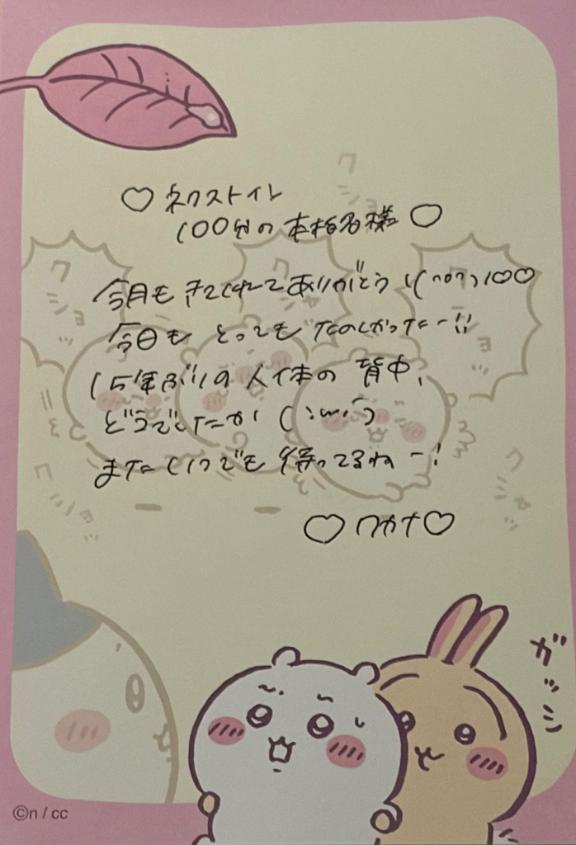 ♡ ネクストイレ
100分の 本指名様 ♡
今月も きてくれてありがとう
今日も とっても たのしかったー!!
15年ぶりの 人体の 背中、
どうでしたか (;ω;)
またいつでも 待ってるねー!
♡ワカナ♡
ガッシ
©n / cc